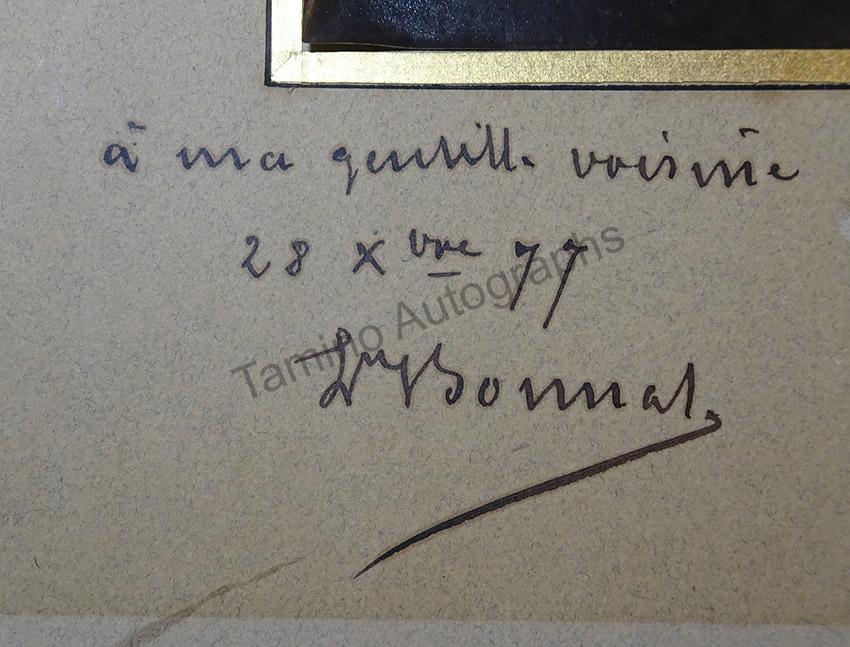 à ma gentille voisine
28 Xbre 77
Ln Bonnat
Tamino Autographs